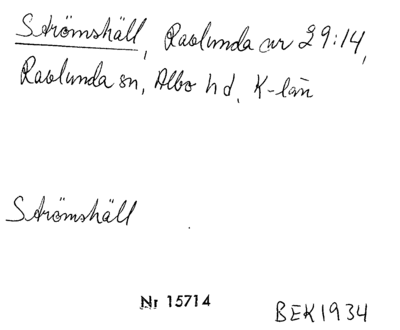 Strömshäll, Ravlunda ur 29:14,
Ravlunda sn, Albo hd, K-län
Strömshäll
Nr 15714
BEK1934